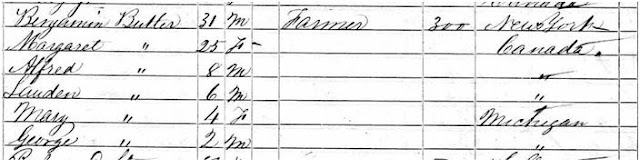 Benjamin Butler 31 M Farmer 300 New York
Margaret " 25 F Canada.
Alfred " 8 M "
Linden " 6 M "
Mary " 4 F Michigan
George " 2 M "